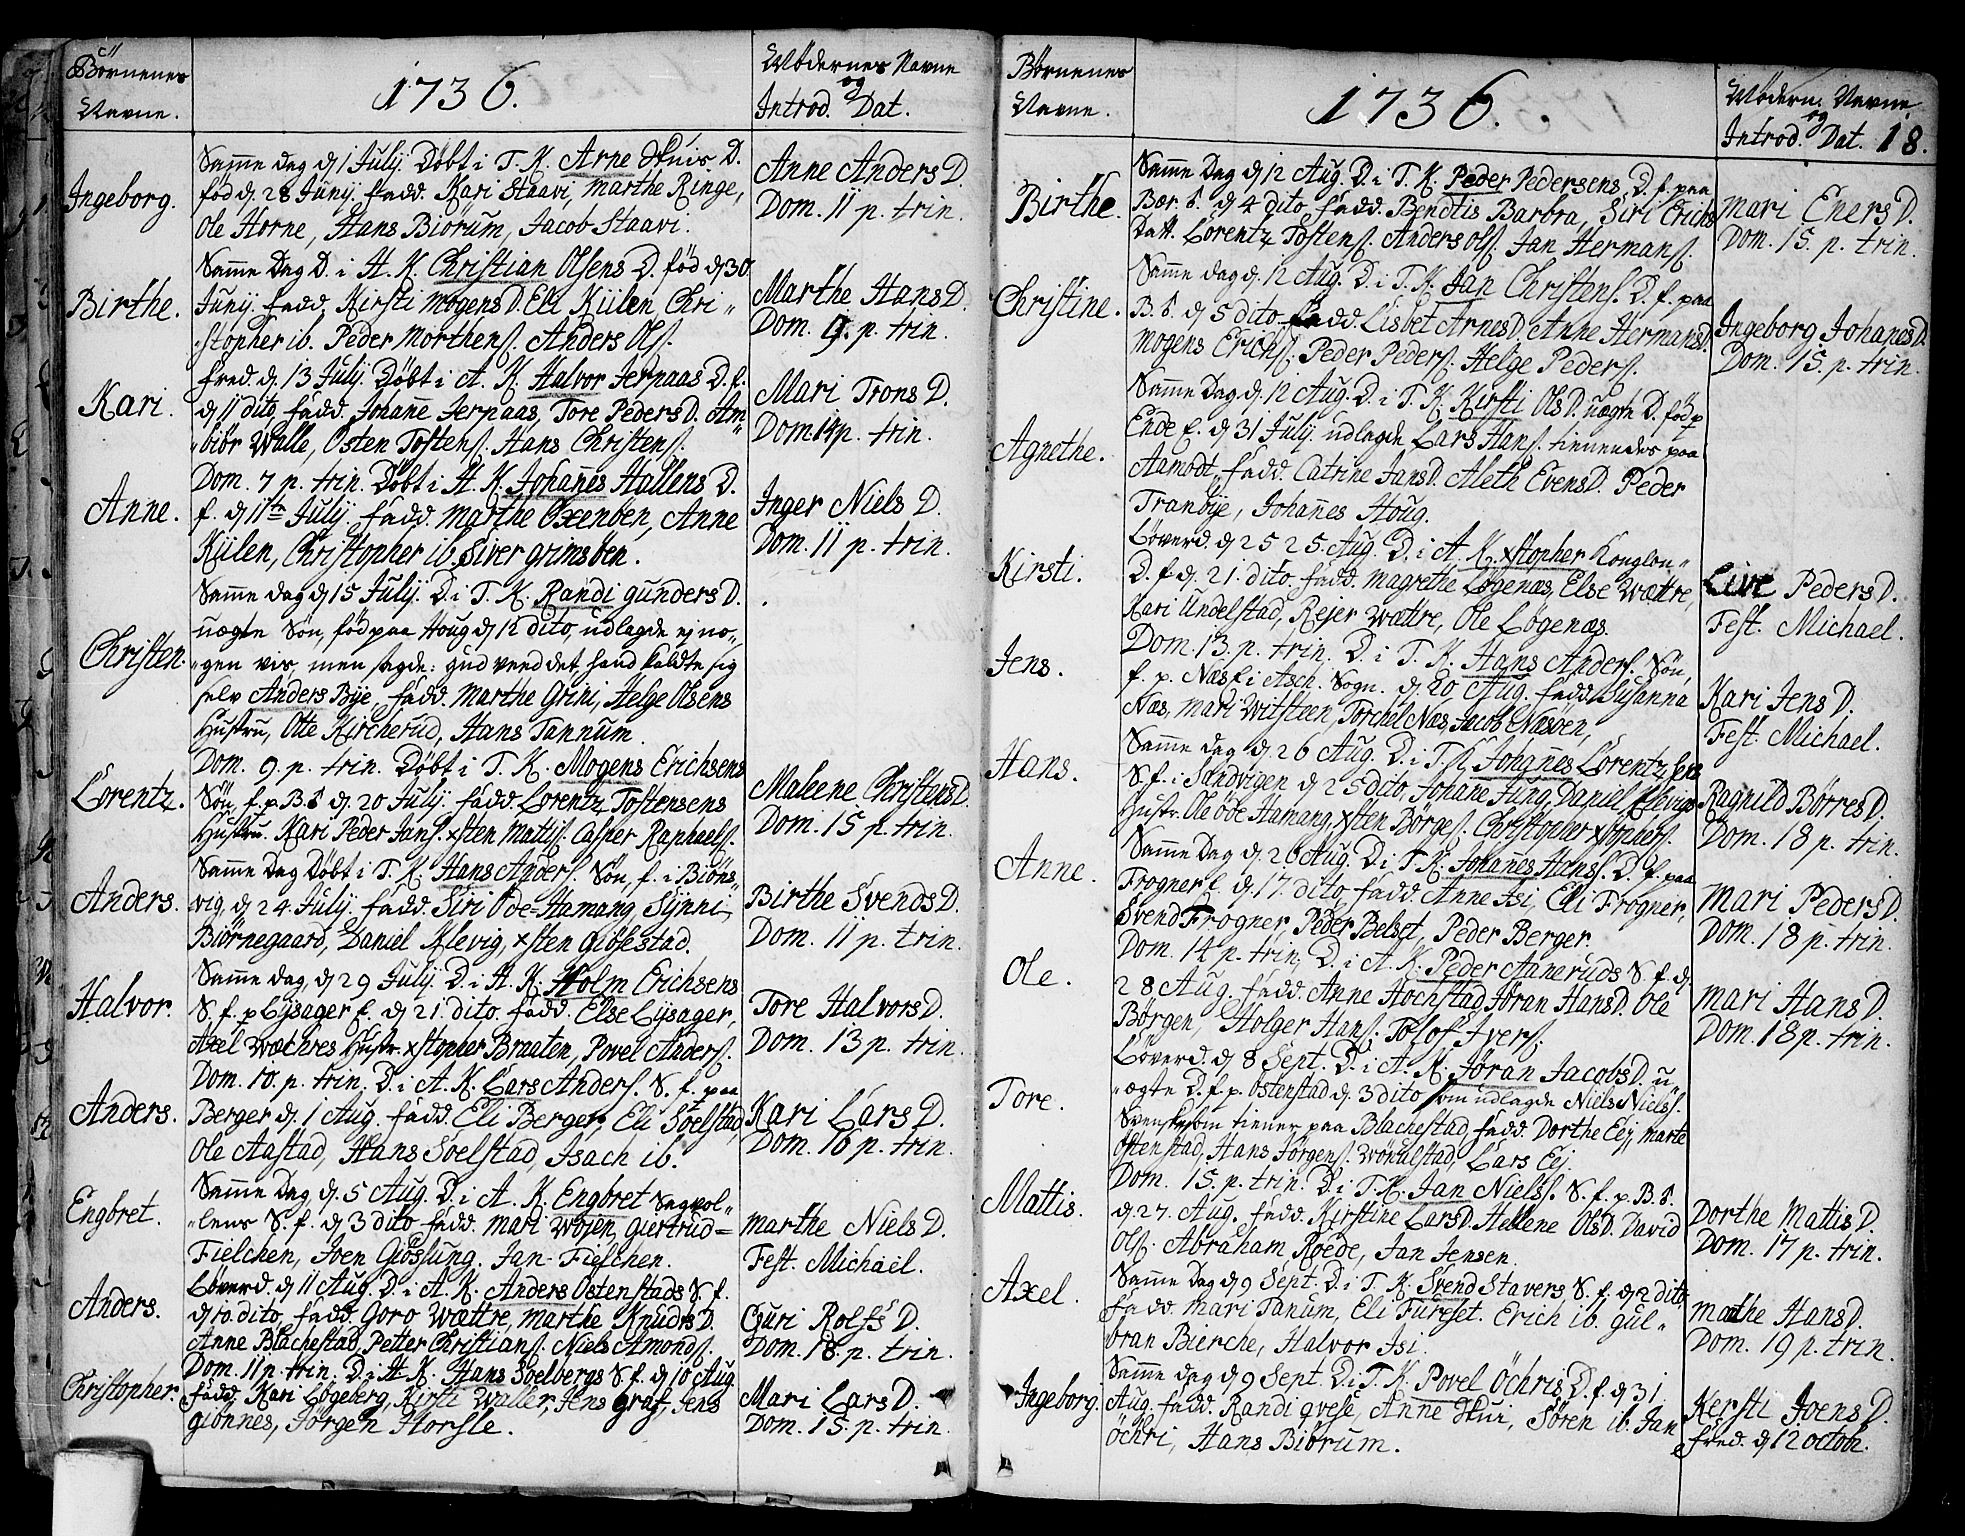 Börnenes
Navne.
1736.
Mödernes Navne
og
Introd. Dat.
Ingeborg.
Samme dag d. 1 July. Döbt i T. K. Arne Skuis D.
föd d. 28 Junij. fadd. Kari Staavi, Marthe Ringe,
Ole Horne, Hans Biörum, Jacob Staavi.
Anne Anders D.
Dom. 11 p. trin.
Birthe.
Samme Dag D. i H. K. Christian Olsens D. föd d. 30
Junij. fadd. Kirsti Mogens D. Eli Kiilen, Chri„
„stopher ib. Peder Morthens. Anders Ols.
Marthe Hans D.
Dom. 9. p. trin.
Kari.
fred. d. 13 July. Döbt i A. K. Halvor Jernaas D. f.
d. 11 dito, fadd. Johanne Jernaas, Tore Peders D. Am„
„biör Walle, Osten Tostens. Hans Christens.
Mari Trons D.
Dom. 14 p. trin.
Anne.
Dom. 7 p. trin. Döbt i H. K. Johannes Hallens D.
f. d. 11te July. fadd. Marthe Oxenöen, Anne
Kiilen, Christopher ib. Siver Grimsöen.
Inger Niels D.
Dom. 11 p. trin.
Christen.
Samme dag d. 15 July. D. i T. K. Randi Gunders D.
uægte Sön, föd paa Houg d. 12 dito, udlagde ej no„
„gen vis, men sagde: gud veed det, hand kaldte sig
selv Anders Bye, fadd. Marthe Grini, Helge Olsens
Hustru, Otte Kircherud, Hans Tannum.
Lorentz.
Dom. 9. p. trin. Döbt i T. K. Mogens Erichsens
Sön, f. p. B. S. d. 20 July. fadd. Lorentz Tostensens
Hustru. Kari Peder Jans. xsten Mattis. Casper Raphaels.
Malene Christens D.
Dom. 15 p. trin.
Anders.
Samme Dag Döbt i T. K. Hans Anders. Sön, f. i Biöns„
vig. d. 24 July. fadd. Siri Öde-Hamang, Synni
Biörnegaard, Daniel Klevig, xsten Giösestad.
Birthe Svends D.
Dom. 11 p. trin.
Halvor.
Samme Dag, d. 29 July. D. i H. K. Holm Erichsens
S. f. p. Lysager E. d. 21. dito. fadd. Else Lysager,
Axel Wæchres Hustr. xstopher Braaten, Povel Anders.
Tore Halvors D.
Dom. 13 p. trin.
Anders.
Dom. 10. p. trin. D. i A. K. Lars Anders. S. f. paa
Berger d. 1 Aug. fadd. Eli Berger, Eli Soelstad,
Ole Aastad, Hans Soelstad, Isach ib.
Kari Lars D.
Dom. 16 p. trin.
Engbret.
Samme Dag d. 5 Aug. D. i A. K. Engbret Sagvol„
„lens S. f. d. 3 dito fadd. Mari Wojen, Giertrud=
Fielchen, Iven Giöslung. Jan Fielchen.
Marthe Niels D.
Fest. Michael.
Anders.
Löverd. d. 11 Aug. D. i A. K. Anders Ostenstads S. f.
d. 10. dito, fadd. Goro Wættre, Marthe Knuds D.
Anne Blachestad, Petter Christians. Niels Amonds.
Guri Rolfs D.
Dom. 18. p. trin.
Christopher.
Dom. 11 p. trin. D. i H. K. Hans Soelbergs S. f. d. 10 Aug.
fadd. Kari Lögeberg, Kirsti Waller, Jens Graf, Jens
Giönnes, Jörgen Horsle.
Mari Lars D.
Dom. 15. p. trin.
Börnenes
Navne.
1736.
Mödern. Navne
og
Introd. Dat. 18.
Birthe.
Samme Dag d. 12 Aug. D. i T. K. Peder Pedersens D. f. paa
Bær. S. d. 4 dito, fadd. Bendtis Barbra, Siri Erichs
Datt. Lorentz Tostens. Anders Ols. Jan Hermans.
Mari Eners D.
Dom. 15. p. trin.
Christine.
Samme dag d. 12 Aug. D. i T. K. Jan Christens. D. f. paa
B. S. d. 5 dito fadd. Lisbet Arnes D. Anne Hermans D.
Mogens Erichs. Peder Peders. Helge Peders.
Ingeborg Johanes D.
Dom. 15. p. trin.
Agnethe.
Samme Dag d. 12 Aug. D. i T. K. Kirsti Ols D. uægte D. föd p.
Ende E. d. 31 July. udlagde Lars Hans. tienendes paa
Aamodt, fadd. Catrine Jans D. Aleth Evens D. Peder
Tranöye, Johannes Houg.
Kirsti.
Löverd. d. 25 25. Aug. D. i A. K. xstopher Konglon„
D. f. d. 21. dito. fadd. Magrethe Lögenæs, Else Wættre,
Kari Undelstad, Rejer Wættre, Ole Lögenæs.
Live Peders D.
Fest. Michael.
Jens.
Dom. 13. p. trin. D. i T. K. Hans Anders. Sön,
f. p. Næs E. i Asch. Sogn. d. 20 Aug. fadd. Susanna
Næs, Mari Witsteen, Torchel Næs, Jacob Næsöen,
Kari Jens D.
Fest. Michael.
Hans.
Samme Dag d. 26 Aug. D. i T. K. Johannes Lorentzsens
S. f. i Sandvigen d. 25 dito, Johane Jung, Daniel Klevigs
Hustr. Ole Öde Hamang, xsten Börges. Christopher xstophers.
Ragnild Börres D.
Dom. 18 p. trin.
Anne.
Samme Dag d. 26 Aug. D. i T. K. Johannes Hans. D. f. paa
Frogner E. d. 17. dito, fadd. Anne Isi, Eli Frogner,
Svend Frogner, Peder Belset, Peder Berger.
Mari Peders D.
Dom. 18 p. trin.
Ole.
Dom. 14 p. trin, D. i A. K. Peder Aaneruds S. f. d.
28 Aug. fadd. Anne Hochstad, Jöran Hans D. Ole
Börgen, Holger Hans. Tolof Ivers.
Mari Hans D.
Dom. 18 p. trin.
Tore.
Löverd. d. 8 Sept. D. i A. K. Jöran Jacobs D. u„
„ægte D. f. p. Ostenstad d. 3 dito som udlagde Niels Niels.
Svensk som tiener paa Blachestad, fadd. Dorthe Eej, Marte
Ostenstad, Hans Jörgens. Woxulstad, Lars Eej.
Mattis.
Dom. 15. p. trin. D. i T. K. Jan Niels. S. f. p. B. S.
d. 27. Aug. fadd. Kirstine Lars D. Hellene Ols D. David
Ols. Abraham Roede, Jan Jensen.
Dorthe Mattis D.
Dom. 17 p. trin.
Axel.
Samme Dag d. 9 Sept. D. i T. K. Svend Stavers S. f. d. 2 dito,
fadd. Mari Tanum, Eli Furset. Erich ib. Gul„
bran Bierche, Halvor Isi.
Mathe Hans D.
Dom. 19 p. trin.
Ingeborg.
Samme dag d. 9 Sept. D. i T. K. Povel Öchris D. f. d. 31.
Aug. fadd. Randi Gvese, Anne Skui, Sören ib. Jan
Öchri, Hans Biörum.
Kersti Joens D.
fred. d. 12 octob.